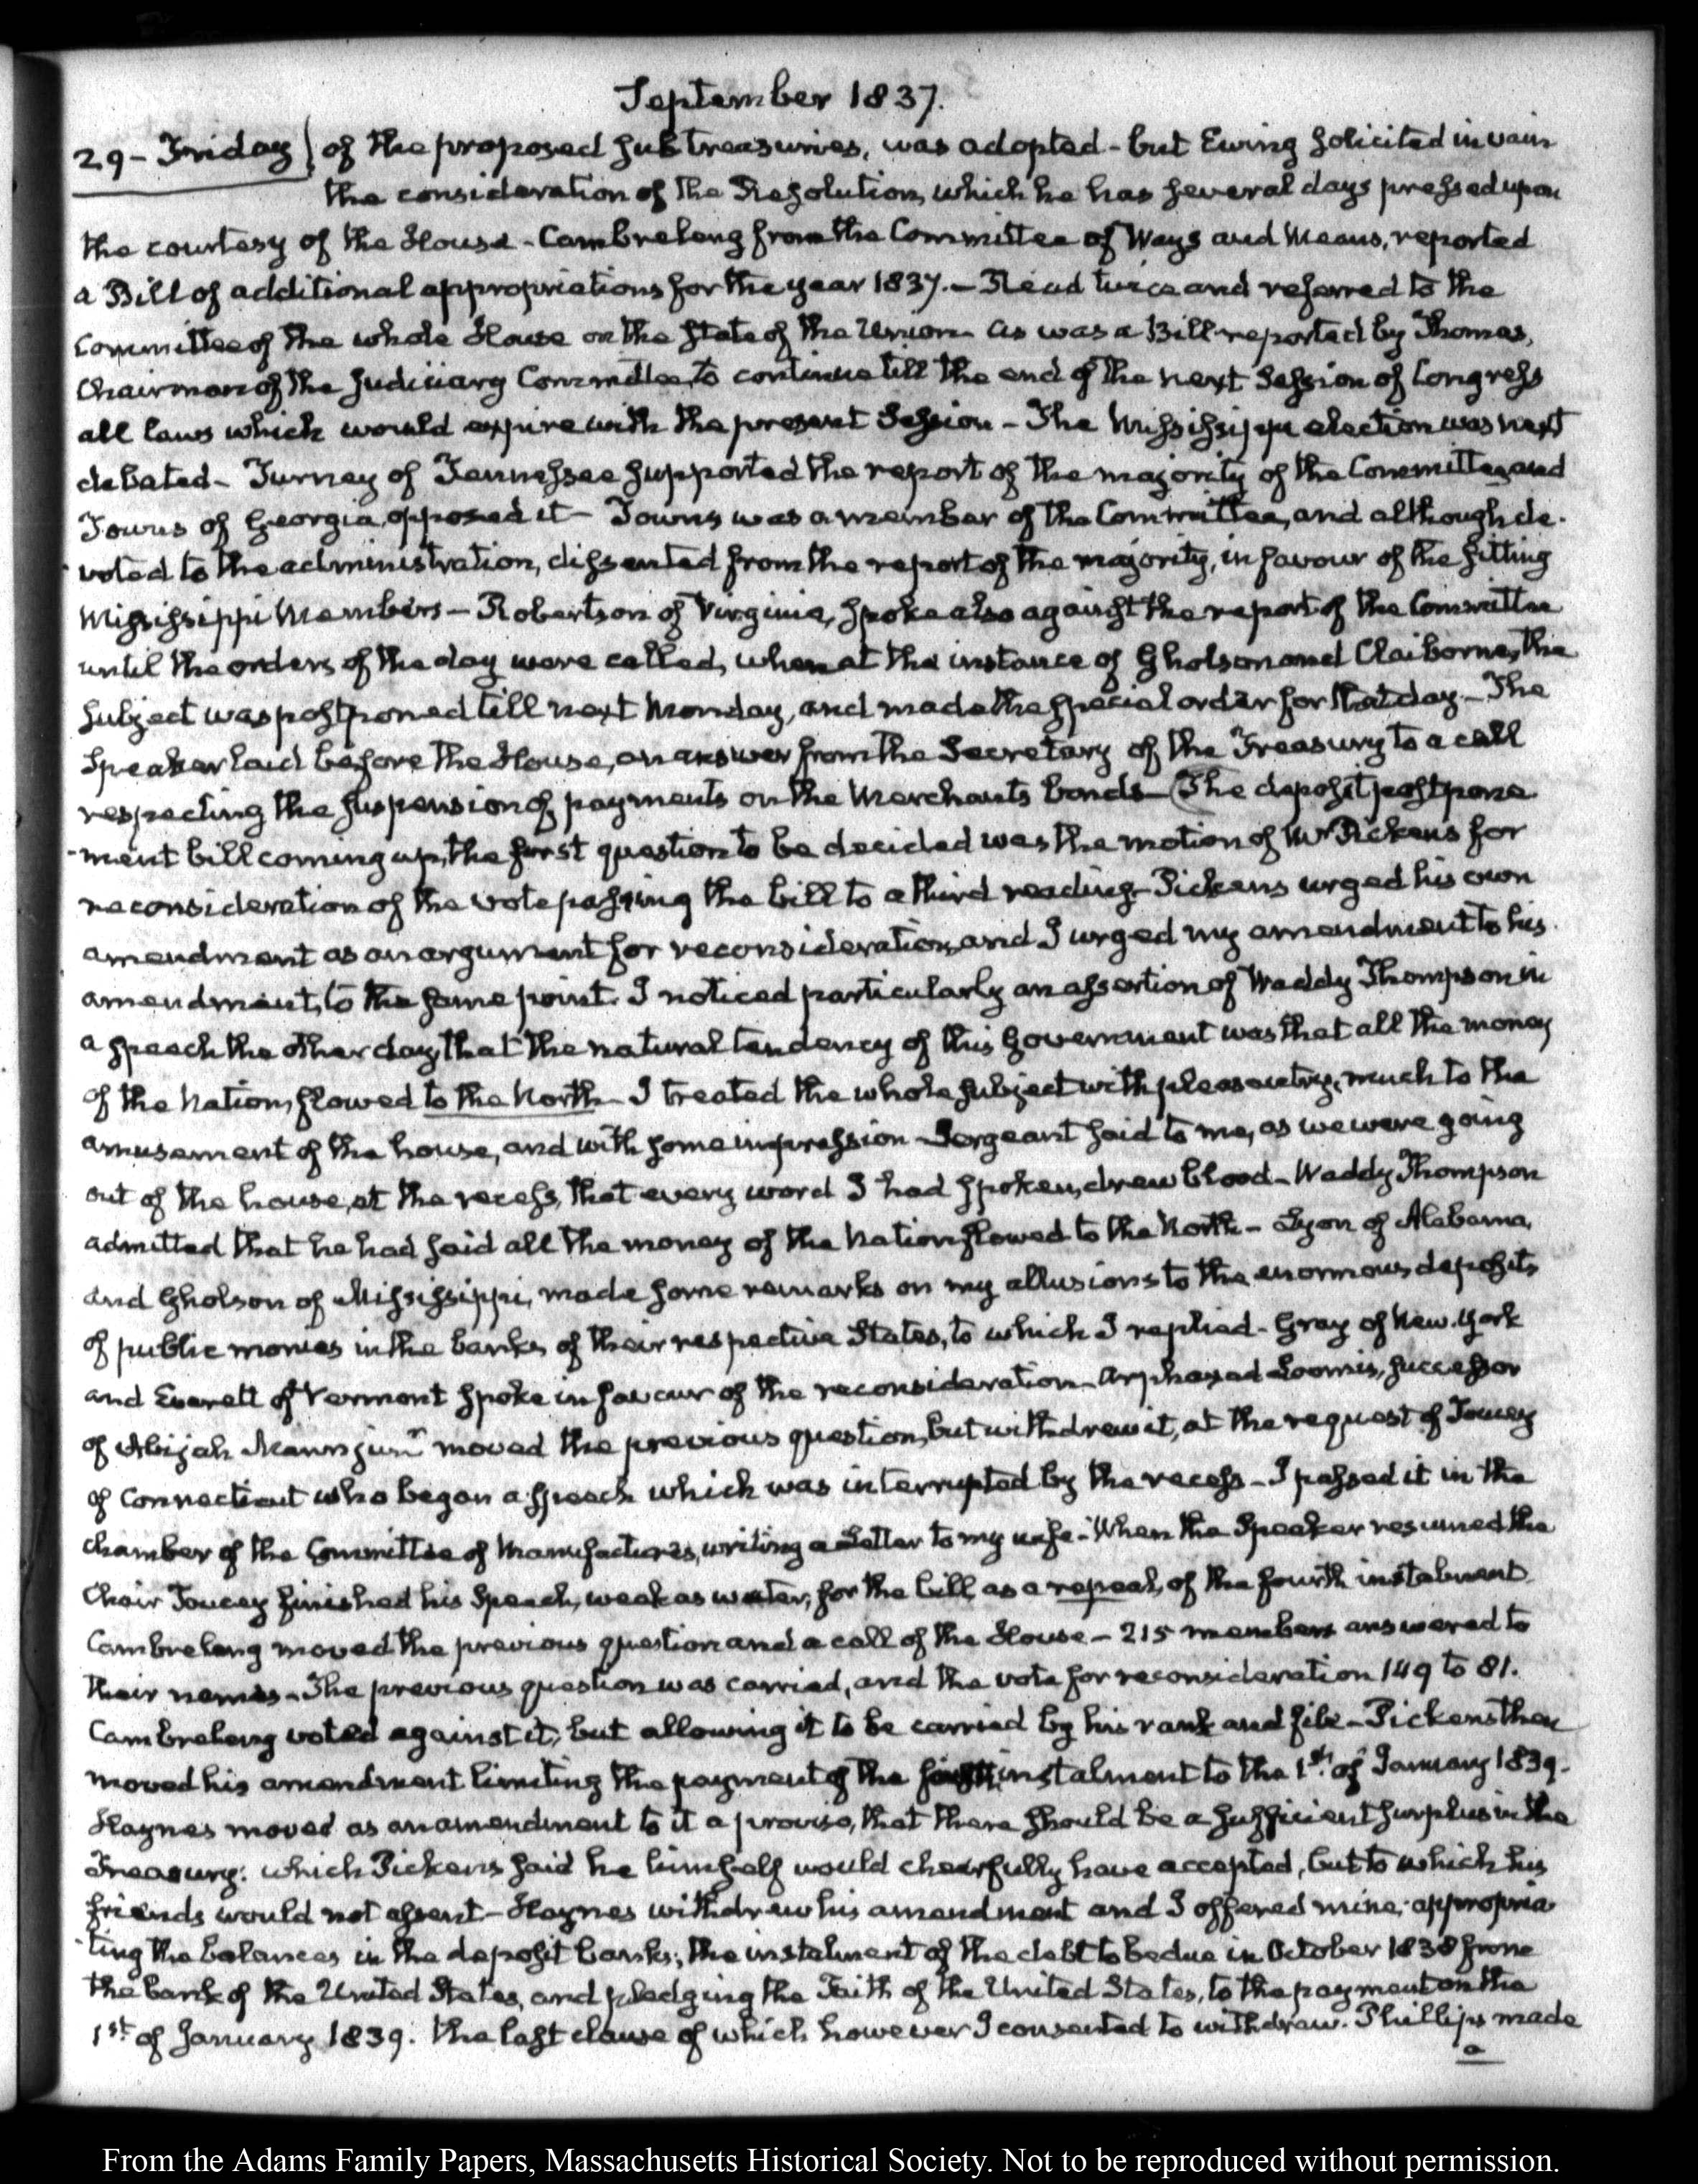 September 1837.
29 - Friday) of the proposed sub treasuries, was adopted - but Ewing solicited in vain
the consideration of the Resolution, which he has several days pressed upon
the courtesy of the House - Cambreleng from the Committee of Ways and Means, reported
a Bill of additional appropriations for the year 1837. - Read twice and referred to the
Committee of the whole House on the State of the Union - As was a Bill reported by Thomas,
Chairman of the Judiciary Committee, to continue till the end of the next Session of Congress
all laws which would expire with the present Session - The Mississippi election was next
debated - Turney of Tennessee supported the report of the majority of the Committee, and
Towns of Georgia, opposed it - Towns was a member of the Committee, and although de-
voted to the administration, dissented from the report of the majority, in favour of the sitting
Mississippi Members - Robertson of Virginia, spoke also against the report of the Committee
until the orders of the day were called, when at the instance of Gholson and Claiborne, the
subject was postponed till next Monday, and made the special order for that day - The
Speaker laid before the House, an answer from the Secretary of the Treasury to a call
respecting the suspension of payments on the Merchants bonds - (The deposit postpone
-ment bill coming up, the first question to be decided was the motion of Mr Pickens for
reconsideration of the vote passing the bill to a third reading - Pickens urged his own
amendment as an argument for reconsideration, and I urged my amendment to his
amendment, to the same point. I noticed particularly an assertion of Waddy Thompson in
a speech the other day, that the natural tendency of this Government was that all the money
of the Nation, flowed to the North - I treated the whole subject with pleasantry, much to the
amusement of the house, and with some impression - Sergeant said to me, as we were going
out of the house, at the recess, that every word I had spoken, drew blood - Waddy Thompson
admitted that he had said all the money of the Nation flowed to the North - Lyon of Alabama,
and Gholson of Mississippi, made some remarks on my allusions to the enormous deposits
of public monies in the banks of their respective States, to which I replied - Gray of New-York
and Everett of Vermont spoke in favour of the reconsideration - Arphaxad Loomis, successor
of Abijah Mann junr moved the previous question, but withdrew it, at the request of Toucey
of Connecticut who began a speech which was interrupted by the recess - I passed it in the
chamber of the Committee of Manufactures, writing a Letter to my wife - When the Speaker resumed the
Chair Toucey finished his Speech, weak as water, for the bill, as a repeal, of the fourth instalment
Cambreleng moved the previous question and a call of the House - 215 members answered to
their names - The previous question was carried, and the vote for reconsideration 149 to 81.
Cambreleng voted against it, but allowing it to be carried by his rank and file - Pickens then
moved his amendment limiting the payment of the fourth instalment to the 1st of January 1839.
Haynes moved as an amendment to it a proviso, that there should be a sufficient surplus in the
Treasury: which Pickens said he himself would cheerfully have accepted, but to which his
friends would not assent - Haynes withdrew his amendment and I offered mine; appropria
-ting the balances in the deposit banks; the instalment of the debt to be due in October 1838 from
the bank of the United States, and pledging the Faith of the United States, to the payment on the
1st of January 1839. the last clause of which however I consented to withdraw. Phillips made
a
From the Adams Family Papers, Massachusetts Historical Society. Not to be reproduced without permission.